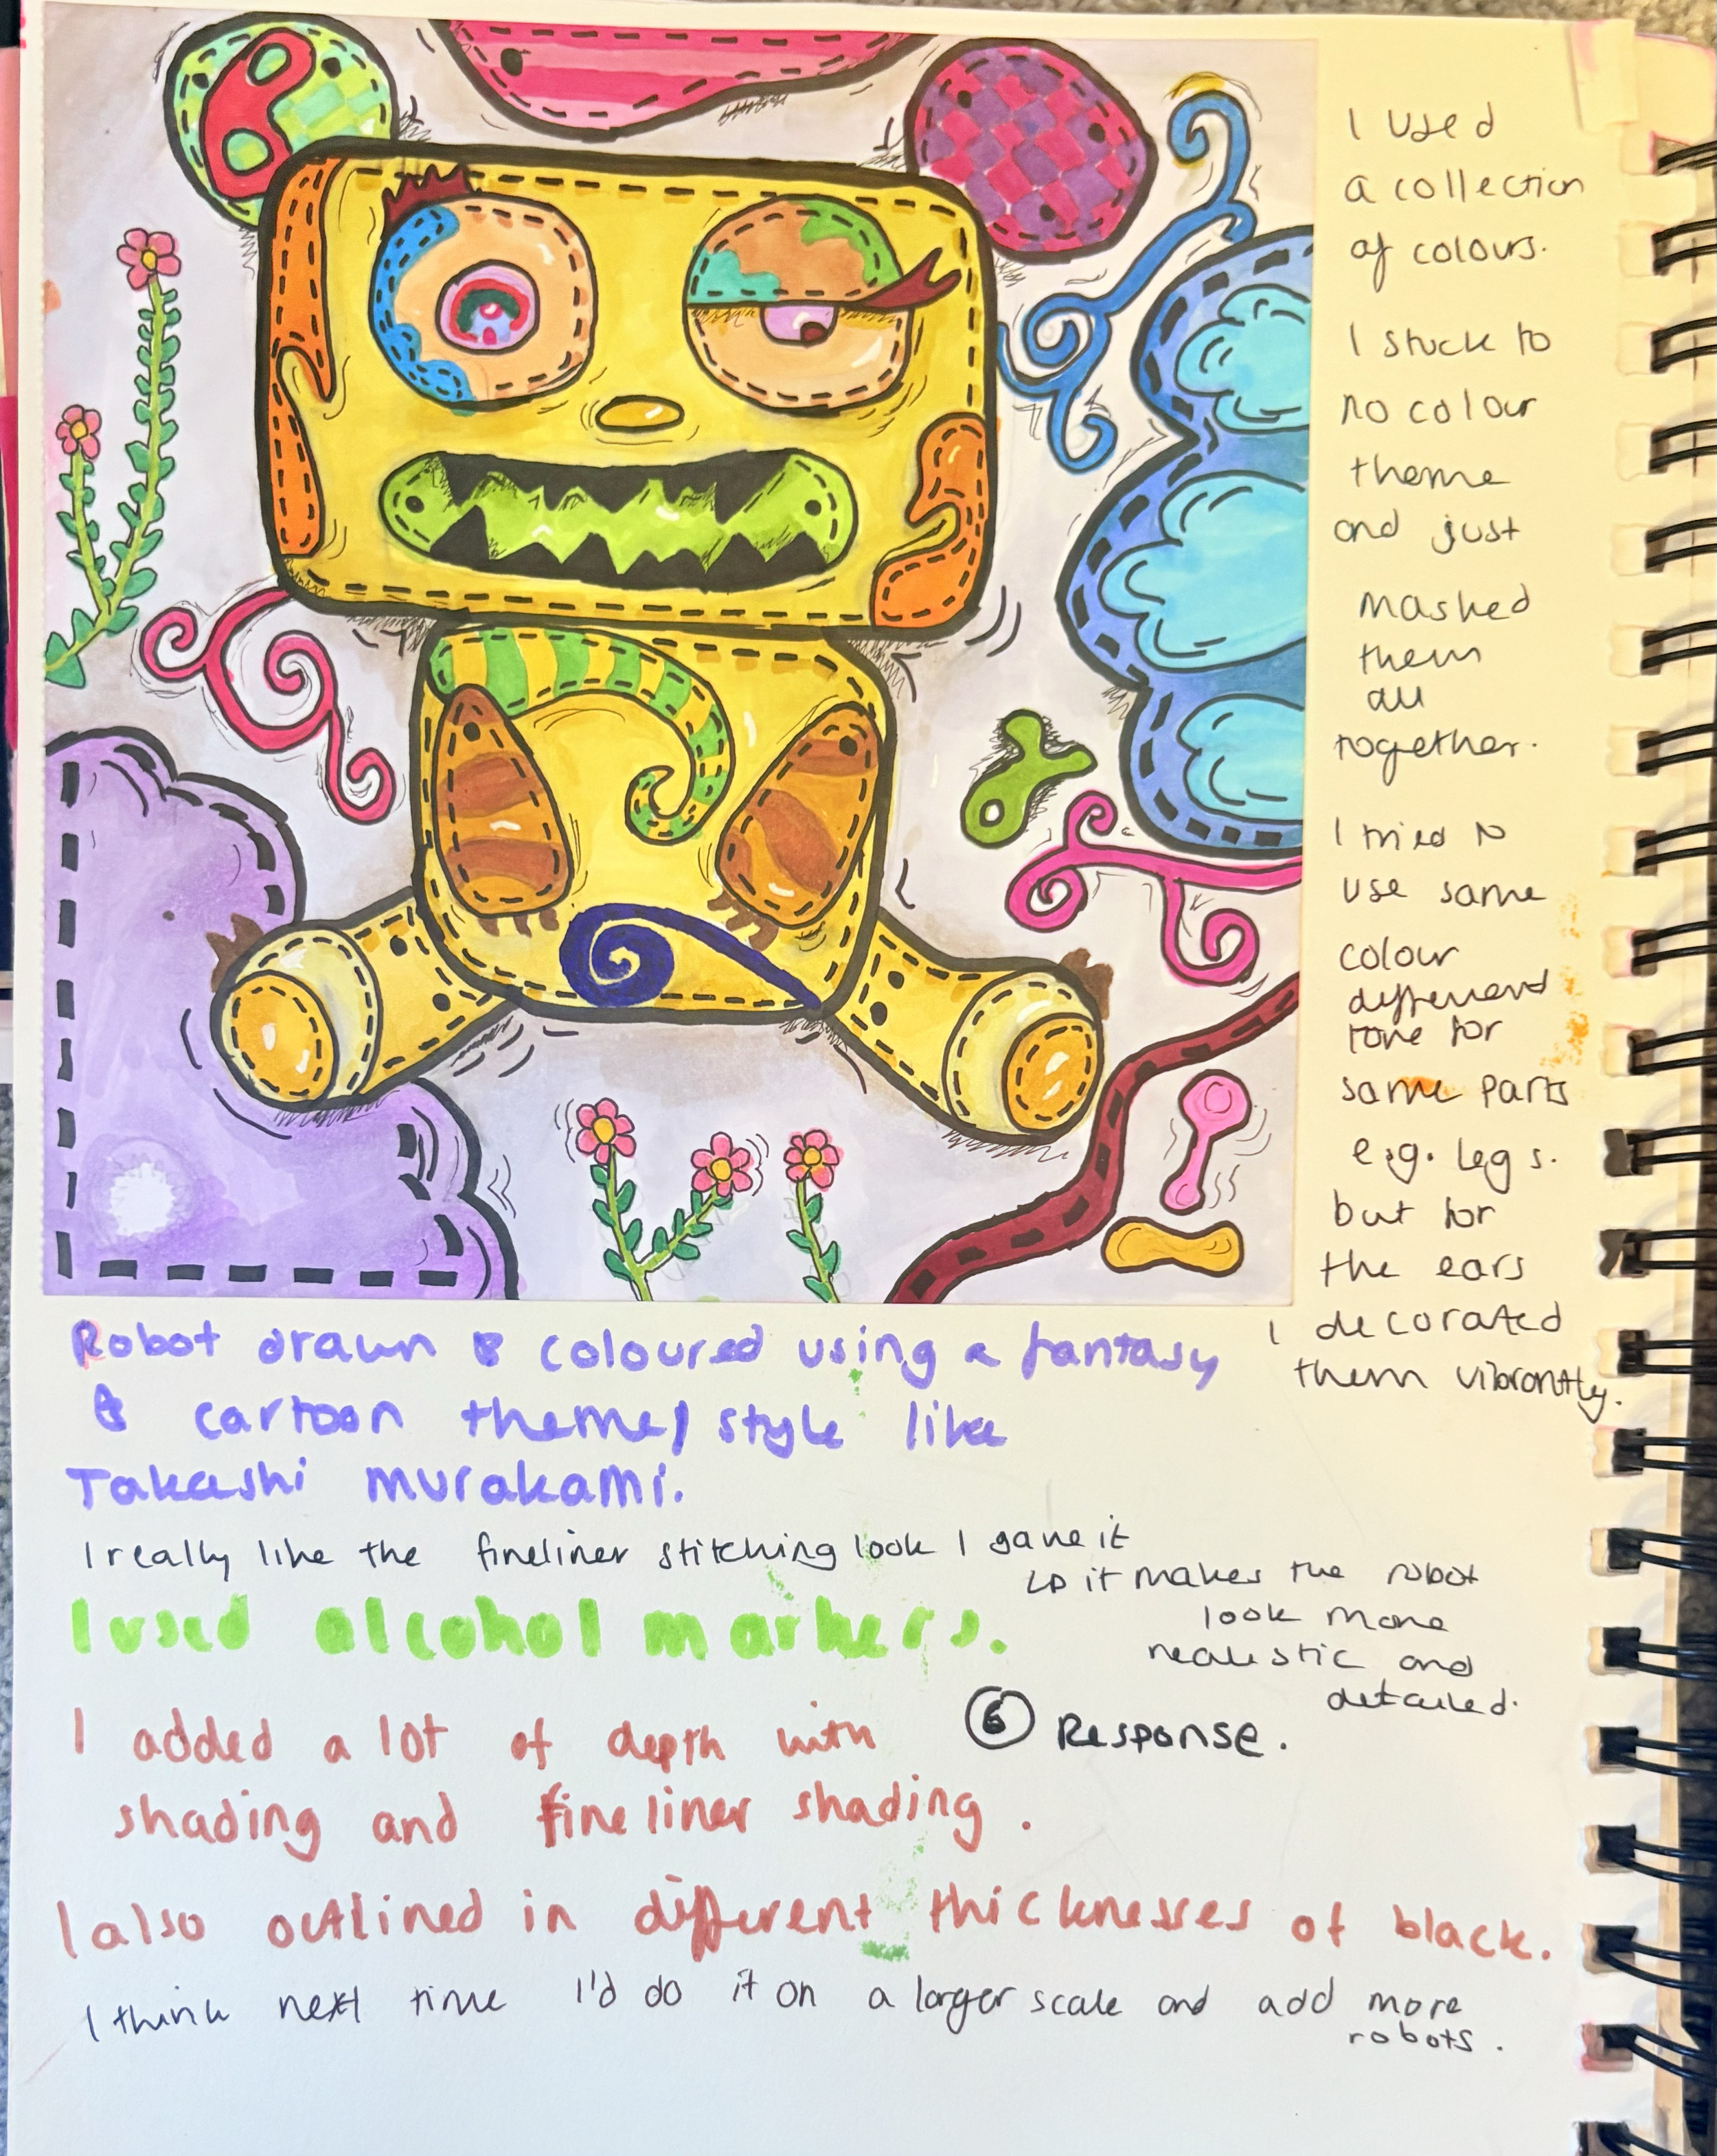 I used
a collection
of colours.
I stuck to
no colour
theme
and just
mashed
them
all
together.
I tried to
use same
colour
different
tone for
some parts
e.g. legs.
but for
the ears
I decorated
them vibrantly.
Robot drawn & coloured using a fantasy
& cartoon theme/style like
Takashi Murakami.
I really like the fineliner stitching look I gave it
↳ it makes the robot
look more
realistic and
detailed.
I used alcohol markers.
⑥ Response.
I added a lot of depth with
shading and fineliner shading.
I also outlined in different thicknesses of black.
I think next time I'd do it on a larger scale and add more
robots.